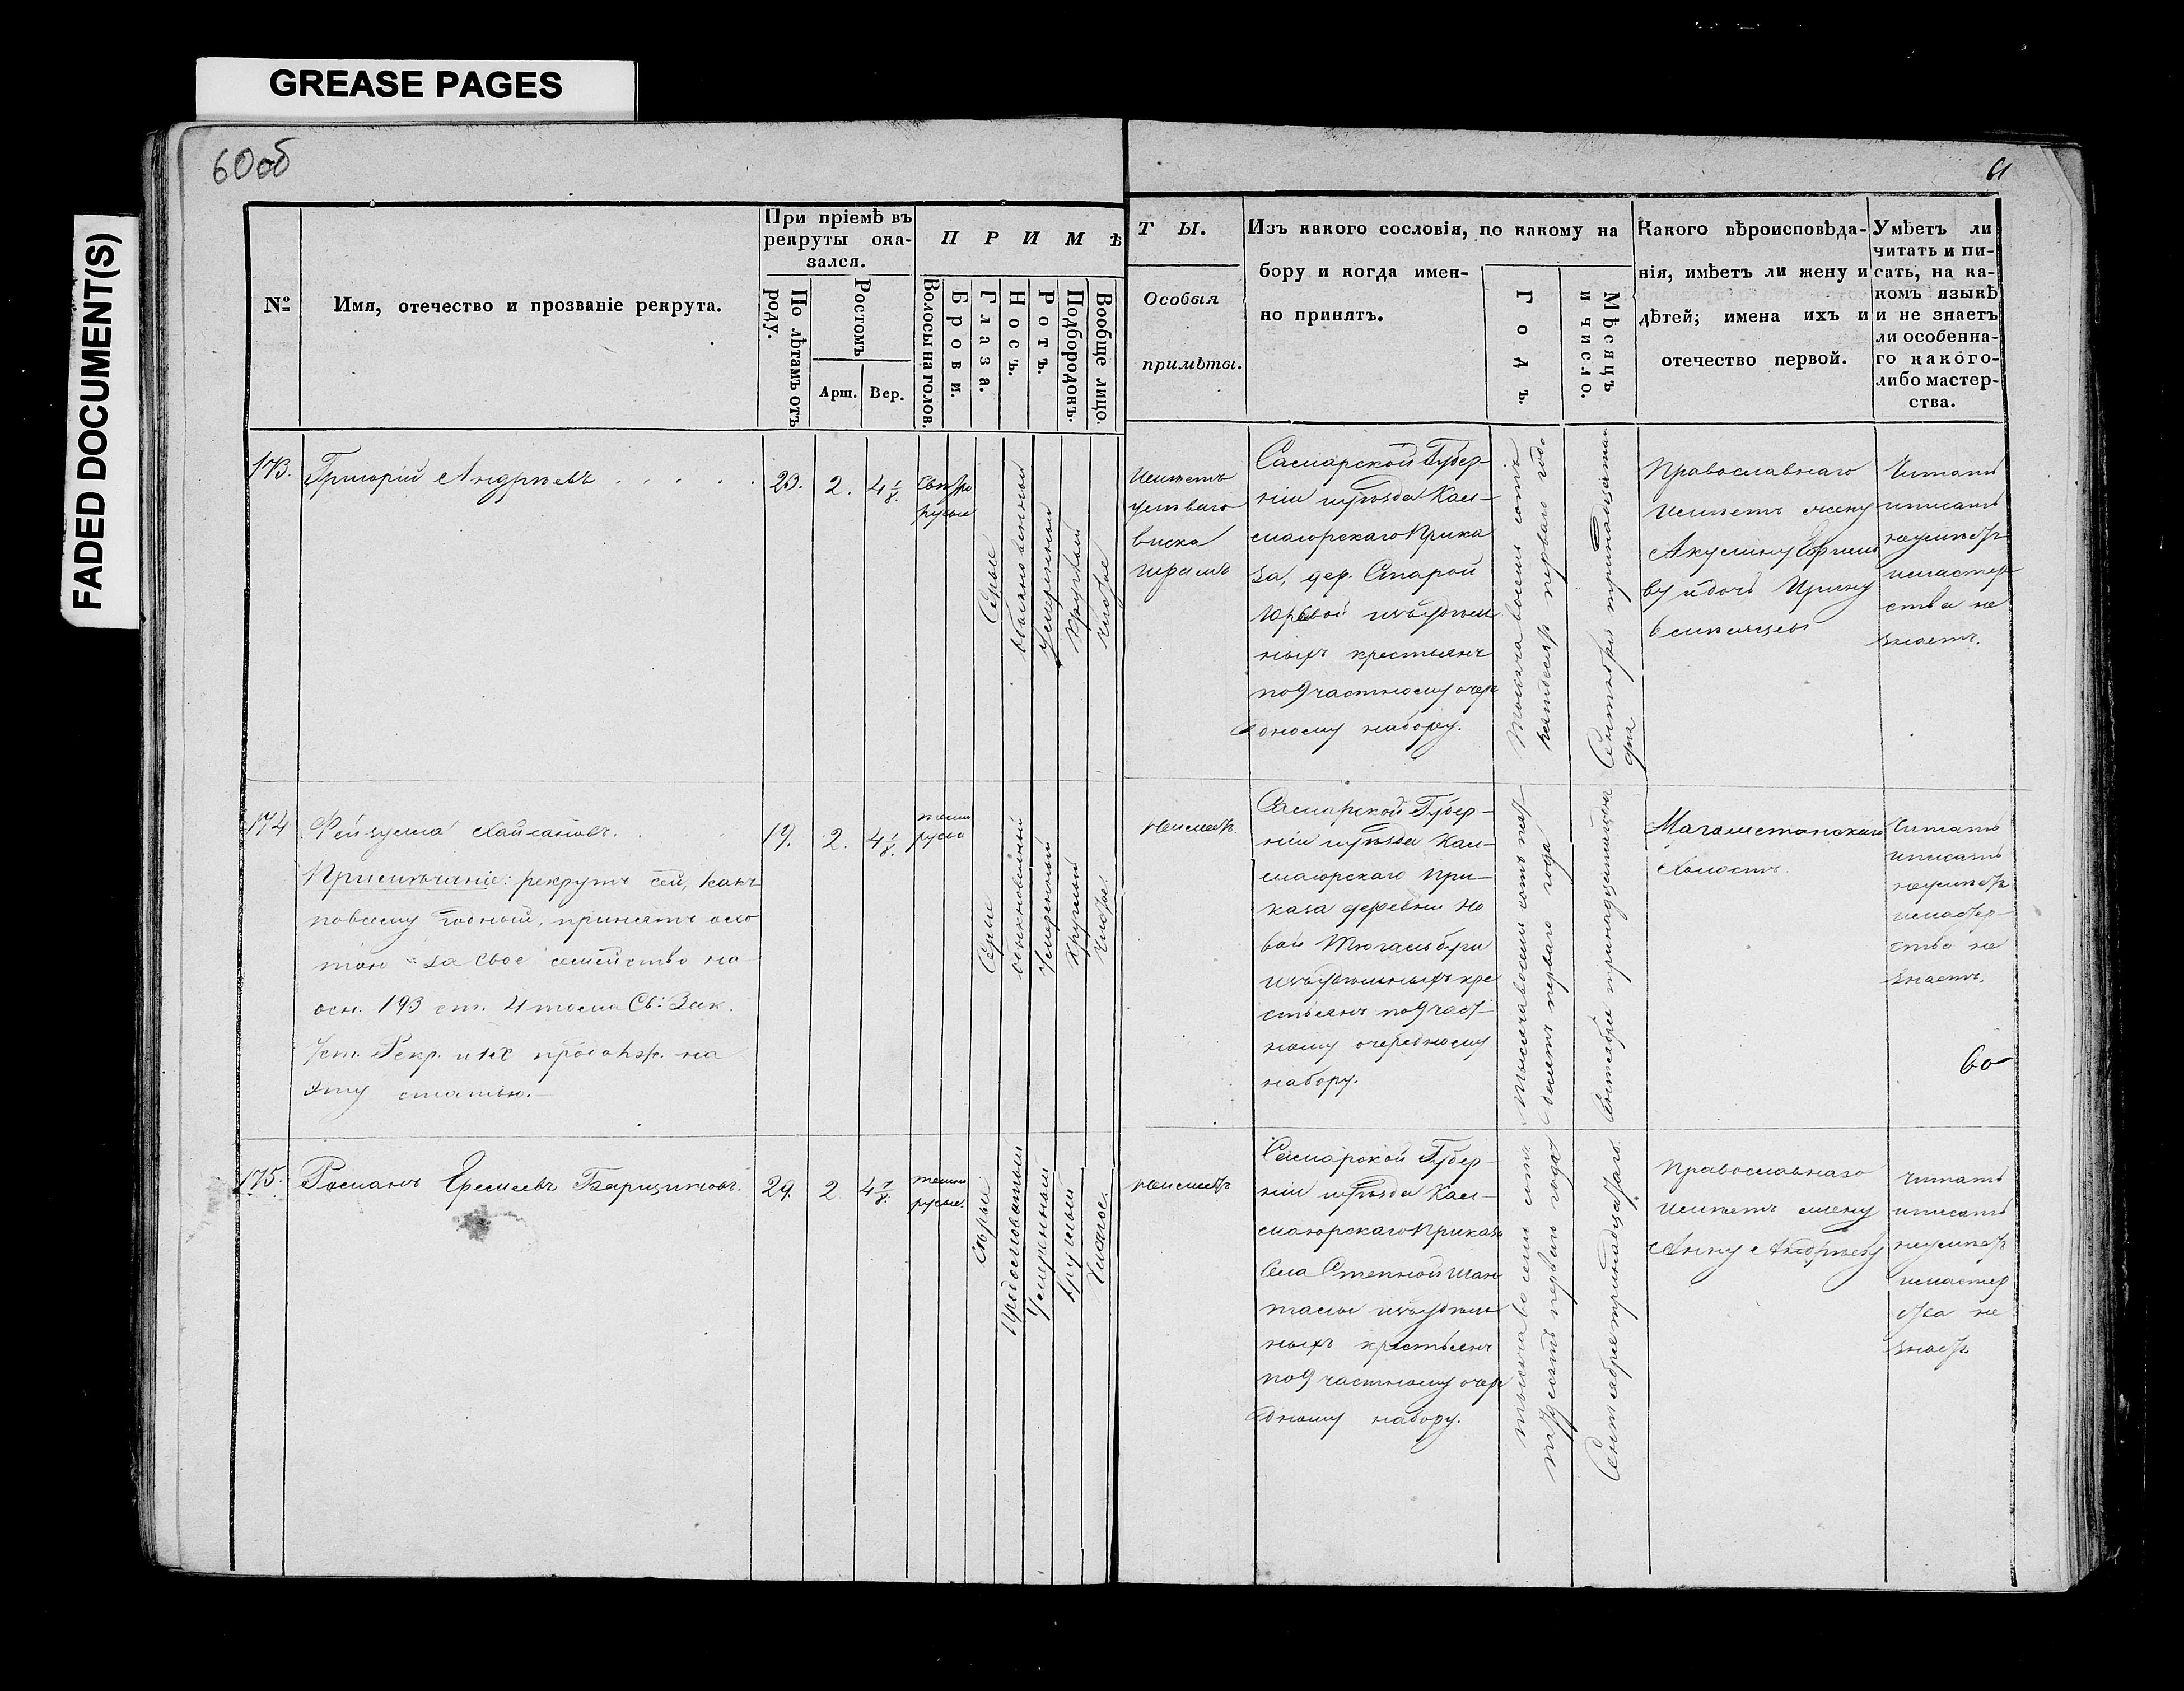 GREASE PAGES
FADED DOCUMENT(S)
60об
61
№
Имя, отечество и прозваніе рекрута.
При пріемѣ въ
рекруты ока-
зался.
По лѣтамъ отъ
роду.
Ростомъ
Арш.
Вер.
ПРИМѢ
Волосы на голов.
Брови.
Глаза.
Носъ.
Ротъ.
Подбородокъ.
Вообще лицо.
ТЫ.
Особыя
примѣты.
Изъ какого сословія, по какому на
бору и когда имен-
но принятъ.
Годъ.
Мѣсяцъ
и число.
Какого вѣроисповѣда-
нія, имѣетъ ли жену и
дѣтей; имена ихъ и
отечество первой.
Умѣетъ ли
читать и пи-
сать, на ка-
комъ языкѣ
и не знаетъ
ли особенна-
го какого-
либо мастер-
ства.
173.
Григорій Андреевъ
23.
2.
4 1/8.
русые
Серые
Умеренный
Круглый
Чистое
Имеетъ
у леваго
виска
шрамъ
Самарской Губер-
ніи и уѣзда Кал-
маюрскаго Прика
за, дер. Старой
изъ удѣль
ныхъ крестьянъ
по 9 частному очере
дному набору.
Тысяча восемь сотъ
пятьдесятъ перваго года
Сентября тринадцатаго
дня
Православнаго
имеетъ жену
Акулину Ефимо
ву и дочь Ирину
Читать
и писать
не умеетъ
и мастер
ства не
знаетъ.
174
Хайсановъ.
Примѣчаніе: рекрутъ сей, какъ
по всему годный, принятъ охо
тою за свое семейство на
осн. 193 ст. 4 тома Св: Зак.
Уст. Рекр. и
эту статью.
19.
2.
4 1/8.
темно
русые
Серые
обыкновенный
Умеренный
Круглый
Чистое.
неимеетъ.
Самарской Губер-
ніи и уѣзда Кал-
маюрскаго При-
каза деревни Но
вой
изъ удѣльныхъ кре
стьянъ по 9 част-
ному очередному
набору.
Тысяча восемь сотъ пять
десятъ перваго года
Сентября тринадцатаго
Магометанскаго
холостъ.
Читать
и писать
не умеетъ
и мастер-
ства не
знаетъ.
60
175.
Романъ Еремеевъ
29.
2
4 7/8.
темно
русые.
Серые
Продолговатый
Умеренный
Круглый
Чистое.
неимеетъ
Самарской Губер-
ніи и уѣзда Кал-
маюрскаго Приказа
Села Степной Шен
талы изъ удѣль
ныхъ крестьянъ
по 9 частному очере
дному набору.
тысяча восемь сотъ
пятьдесятъ перваго года
Сентября тринадцатаго.
Православнаго
имеетъ жену
Анну Андрееву
читать
и писать
не умеетъ
и мастер
ства не
знаетъ.